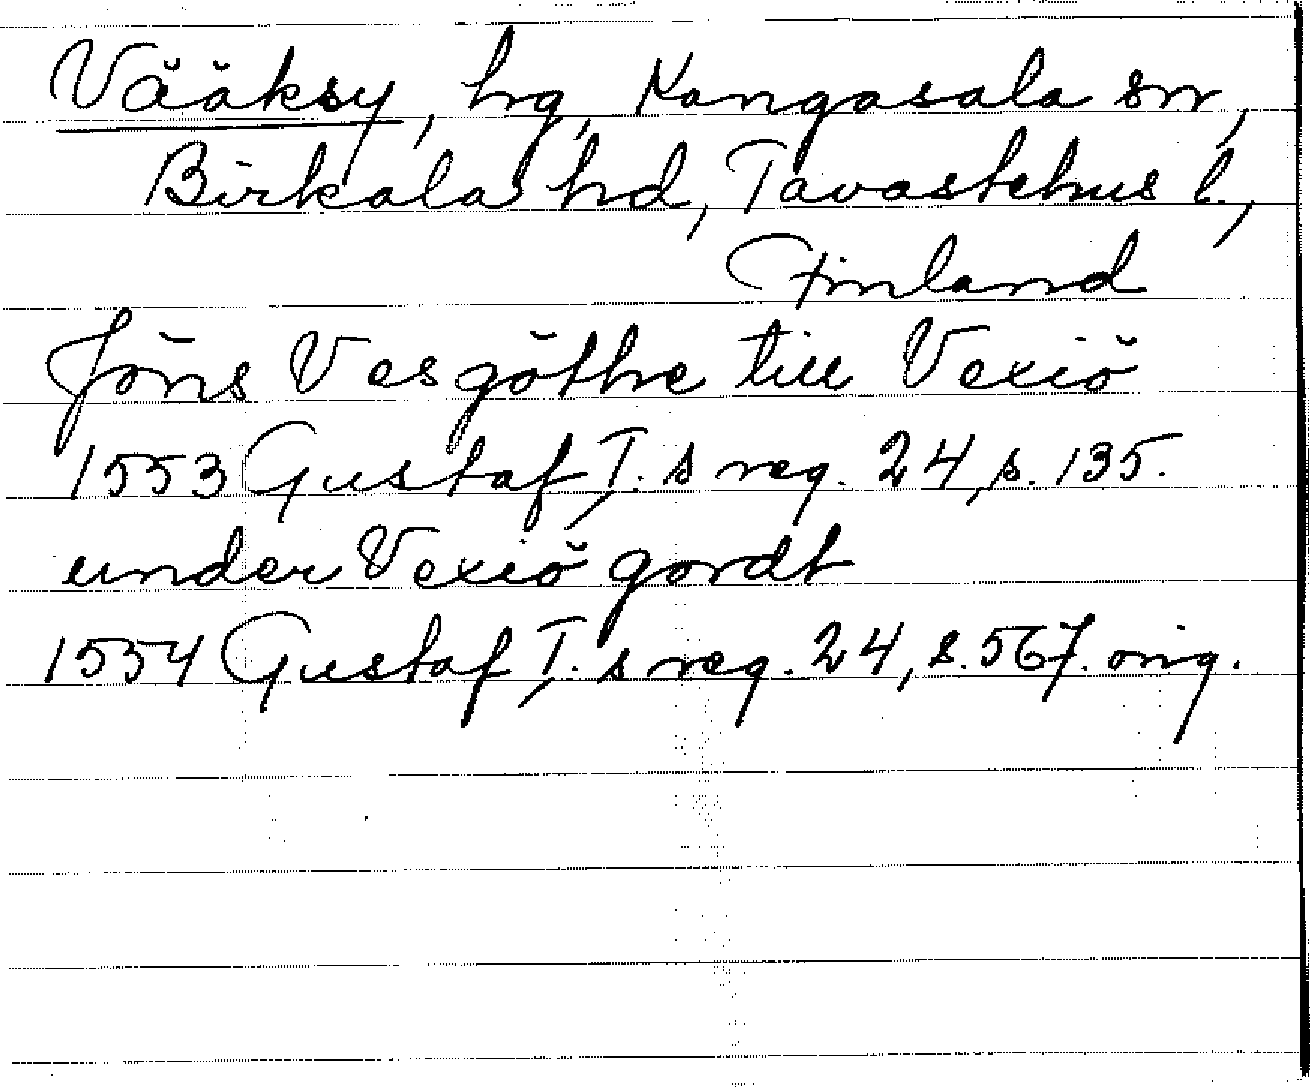 Vääksy, hg, Kangasala sn,
Birkala hd, Tavastehus l.,
Finland
Jöns Vesgöthe till Vexiö
1553 Gustaf I. s reg. 24, s. 135.
under Vexiö gordt
1554 Gustaf I. s reg. 24, s. 567. orig.